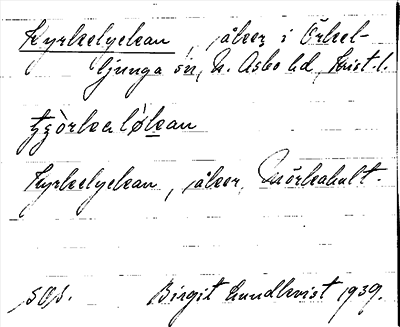 Kyrkelyckan, åker i Örkel-
ljunga sn, N. Åsbo hd, Krist. l.
Kyrkelyckan, åker, Mörkahult.
sos. Birgit Lundkvist 1939.